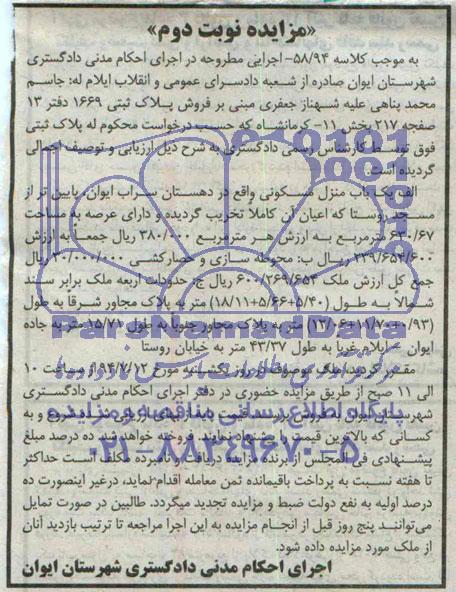 «مزایده نوبت دوم»
به موجب کلاسه ۵۸/۹۴- اجرایی مطروحه در اجرای احکام مدنی دادگستری
شهرستان ایوان صادره از شعبه دادسرای عمومی و انقلاب ایلام له: جاسم
محمد پناهی علیه شهناز جعفری مبنی بر فروش پلاک ثبتی ۱۶۶۹ دفتر ۱۳
صفحه ۲۱۷ بخش ۱۱- کرمانشاه که حسب درخواست محکوم له پلاک ثبتی
فوق توسط کارشناس رسمی دادگستری به شرح ذیل ارزیابی و توصیف اجمالی
گردیده است.
الف یک باب منزل مسکونی واقع در دهستان سراب ایوان، پایین تر از
مسجد روستا که اعیان آن کاملاً تخریب گردیده و دارای عرصه به مساحت
۶۳۰/۶۷ مترمربع به ارزش هر مترمربع ۳۸۰/۰۰۰ ریال جمعاً به ارزش
۲۳۹/۶۵۴/۶۰۰ ریال ب: محوطه سازی و حصارکشی ۳۰/۰۰۰/۰۰۰ ریال
جمع کل ارزش ملک ۲۶۹/۶۵۴/۶۰۰ ریال ج: حدودات اربعه ملک برابر سند
شمالاً به طول (۵/۴۰+۵/۶۶+۱۸/۱۱) متر به پلاک مجاور شرقا به طول
متر به پلاک مجاور جنوباً به طول ۱۵/۷۱ متر به جاده
ایوان - ایلام غرباً به طول ۴۳/۳۷ متر به خیابان روستا
مقرر گردید ملک موصوف در روز یکشنبه مورخ ۹۴/۷/۱۲ از ساعت ۱۰
الی ۱۱ صبح از طریق مزایده حضوری در دفتر اجرای احکام مدنی دادگستری
شهرستان ایوان به فروش برسد. قیمت پایه از بهای ارزیابی شده شروع و به
کسانی که بالاترین قیمت را پیشنهاد نمایند. فروخته خواهد شد ده درصد مبلغ
پیشنهادی فی المجلس از برنده مزایده دریافت و نامبرده مکلف است حداکثر
تا هفته نسبت به پرداخت باقیمانده ثمن معامله اقدام نماید، درغیر اینصورت ده
درصد اولیه به نفع دولت ضبط و مزایده تجدید میگردد. طالبین در صورت تمایل
می‌توانند پنج روز قبل از انجام مزایده به این اجرا مراجعه تا ترتیب بازدید آنان
از ملک مورد مزایده داده شود.
اجرای احکام مدنی دادگستری شهرستان ایوان
ParsNamadData
پایگاه اطلاع رسانی مناقصه و مزایده
۰۲۱-۸۸۳۴۹۶۷۰-۵